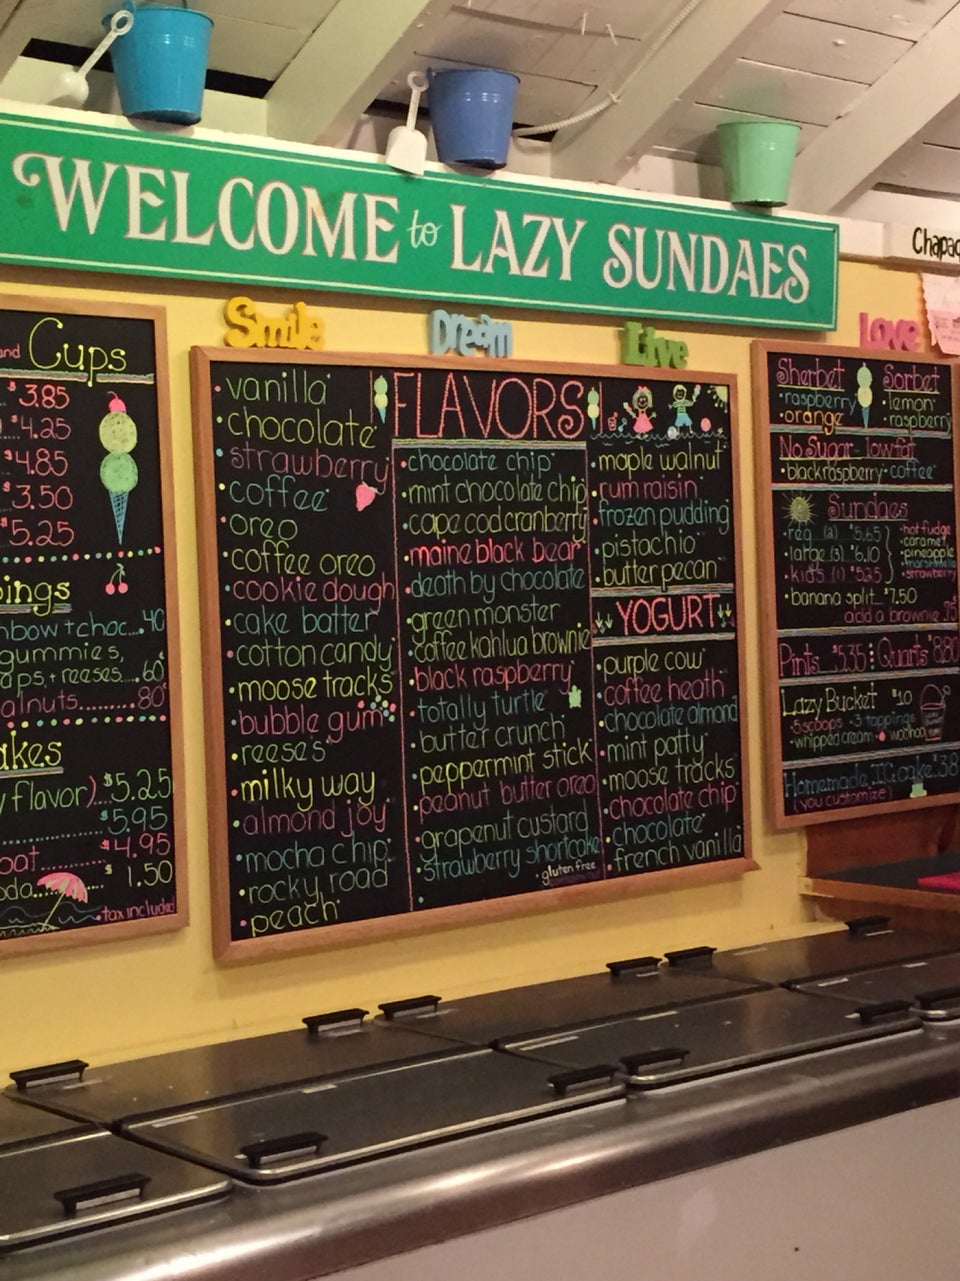 WELCOME to LAZY SUNDAES
Chapaq
Smile
Dream
Live
Love
and Cups
$3.85
$4.25
$4.85
$3.50
$5.25
ings
nbow + choc...40
gummies,
aps, + reeses....60¢
alnuts........80¢
akes
y flavor)...$5.25
$5.95
oat.......$4.95
oda.....$1.50
tax included
• vanilla
• chocolate
• strawberry
• coffee
• oreo
• coffee oreo
• cookie dough
• cake batter
• cotton candy
• moose tracks
• bubble gum
• reese's
• milky way
• almond joy
• mocha chip
• rocky road
• peach
FLAVORS
• chocolate chip
• mint chocolate chip
• cape cod cranberry
• maine black bear
• death by chocolate
• green monster
• coffee kahlua brownie
• black raspberry
• totally turtle
• butter crunch
• peppermint stick
• peanut butter oreo
• grapenut custard
• strawberry shortcake
• gluten free
• maple walnut
• rum raisin
• frozen pudding
• pistachio
• butter pecan
YOGURT
• purple cow
• coffee heath
• chocolate almond
• mint patty
• moose tracks
• chocolate chip
• chocolate
• french vanilla
Sherbet
• raspberry
• orange
Sorbet
• lemon
• raspberry
No Sugar - lowfat
• black raspberry • coffee
Sundaes
• reg (2) $5.65
• large (3) $6.10
• kid's (1) $5.25
• hot fudge
• caramel
• pineapple
• marshmallow
• strawberry
• banana split..$7.50
add a brownie
Pints...$5.35 Quarts 8.80
Lazy Bucket $10
• 5 scoops • 3 toppings
• whipped cream • woohoo
Homemade I.C. cake $38
(you customize)